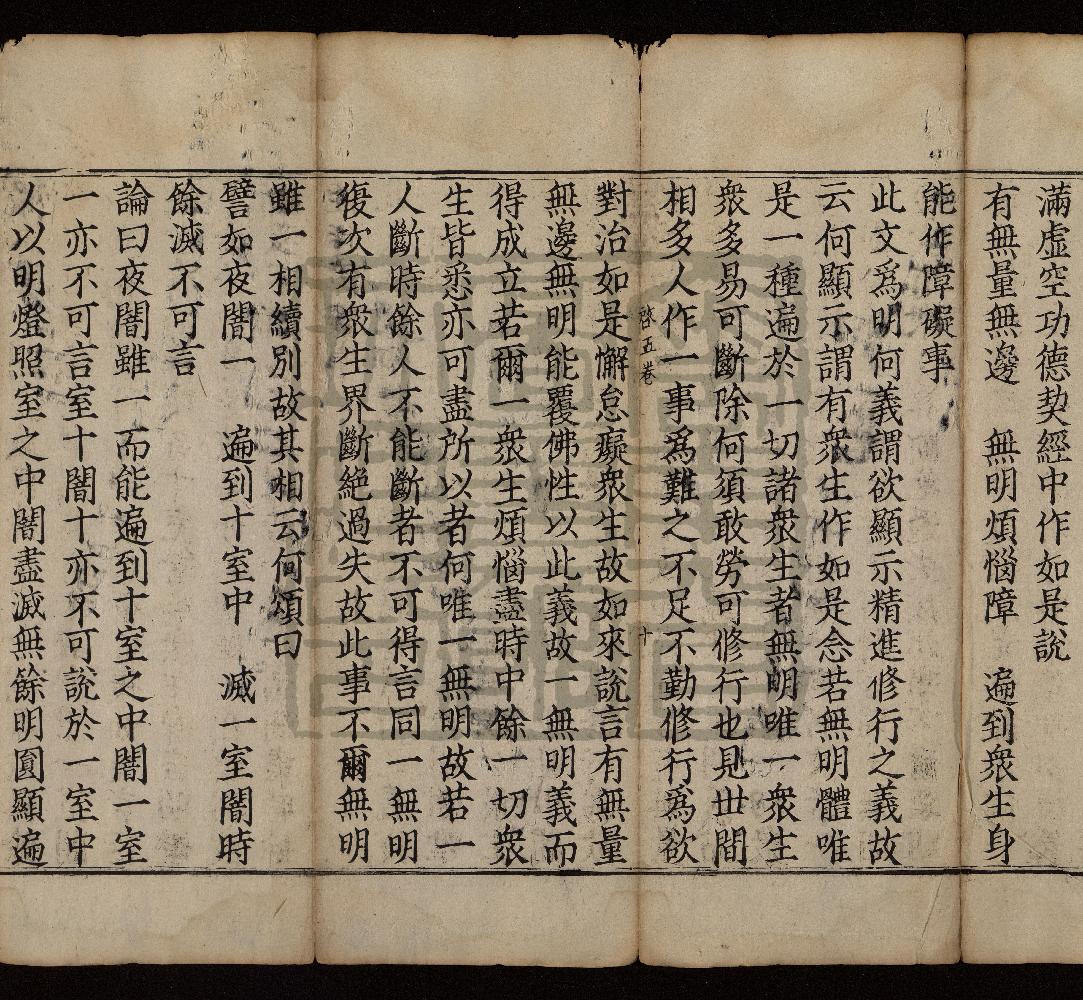 滿虛空功德契經中作如是說
有無量無邊　無明煩惱障　遍到衆生身
能作障礙事
此文爲明何義謂欲顯示精進修行之義故
云何顯示謂有衆生作如是念若無明體唯
是一種遍於一切諸衆生者無明唯一衆生
衆多易可斷除何須敢勞可修行也見世間
相多人作一事爲難之不足不勤修行爲欲
啓五卷　十
對治如是懈怠癡衆生故如來說言有無量
無邊無明能覆佛性以此義故一無明義而
得成立若爾一衆生煩惱盡時中餘一切衆
生皆悉亦可盡所以者何唯一無明故若一
人斷時餘人不能斷者不可得言同一無明
復次有衆生界斷絶過失故此事不爾無明
雖一相續別故其相云何頌曰
譬如夜闇一　遍到十室中　滅一室闇時
餘滅不可言
論曰夜闇雖一而能遍到十室之中闇一室
一亦不可言室十闇十亦不可說於一室中
人以明燈照室之中闇盡滅無餘明圓顯遍